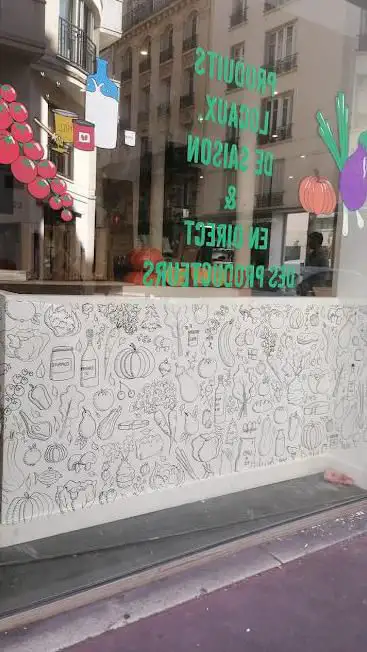 PRODUITS
LOCAUX,
DE SAISON
&
EN DIRECT
DES PRODUCTEURS